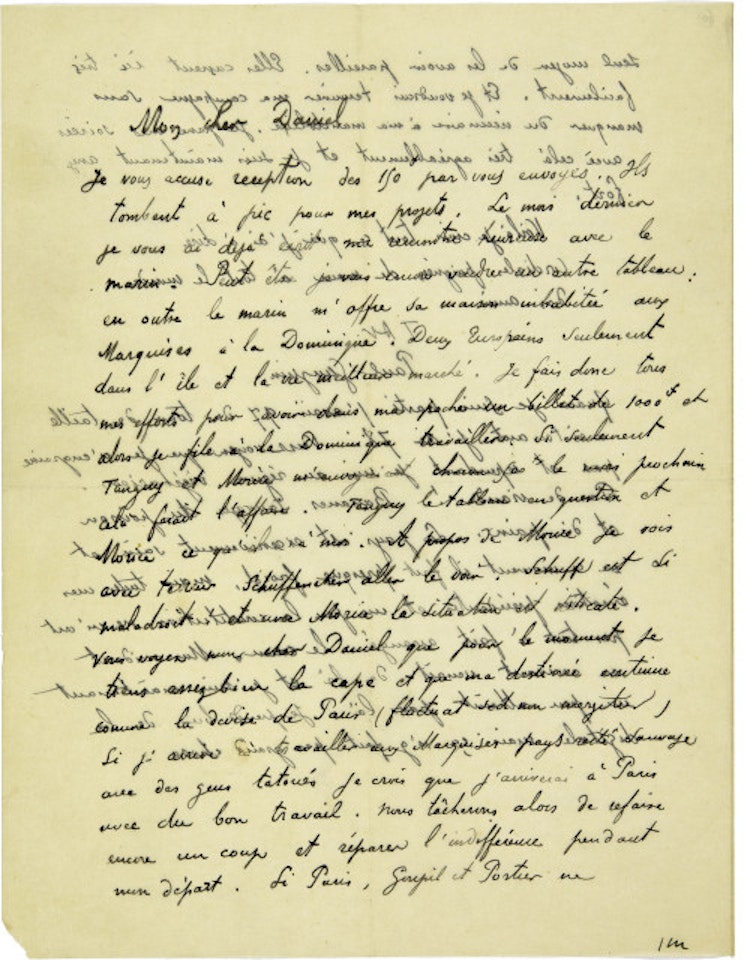 Mon cher Daniel
Je vous accuse reception des 150 par vous envoyés. Ils
tombent à pic pour mes projets. Le mois dernier
je vous ai déjà écrit ma rencontre heureuse avec le
marin. Peut être je vais encore vendre un autre tableau;
en outre le marin m'offre sa maison inhabitée aux
Marquises à la Dominique. Deux Européens seulement
dans l'île et la vie meilleur marché. Je fais donc tous
mes efforts pour avoir dans ma poche un billet de 1000f et
alors je file à la Dominique travailler. Si seulement
Tanguy et Morice m'envoyait chacun le mois prochain
cela ferait l'affaire. Tanguy le tableau en question et
Morice ce qu'il a à moi. A propos de Morice je vois
avec terreur Schuffenecker aller le voir. Schuff est si
maladroit et avec Morice la situation est délicate.
Vous voyez mon cher Daniel que pour le moment je
tiens assez bien la cape et que ma destinée continue
comme la devise de Paris (fluctuat sed non mergitur)
Si j'arrive travailler aux Marquises pays resté sauvage
avec des gens tatoués je crois que j'arriverai à Paris
avec du bon travail. Nous tâcherons alors de refaire
encore un coup et réparer l'indifférence pendant
mon départ. Si Paris, Goupil et Portier ne
1m